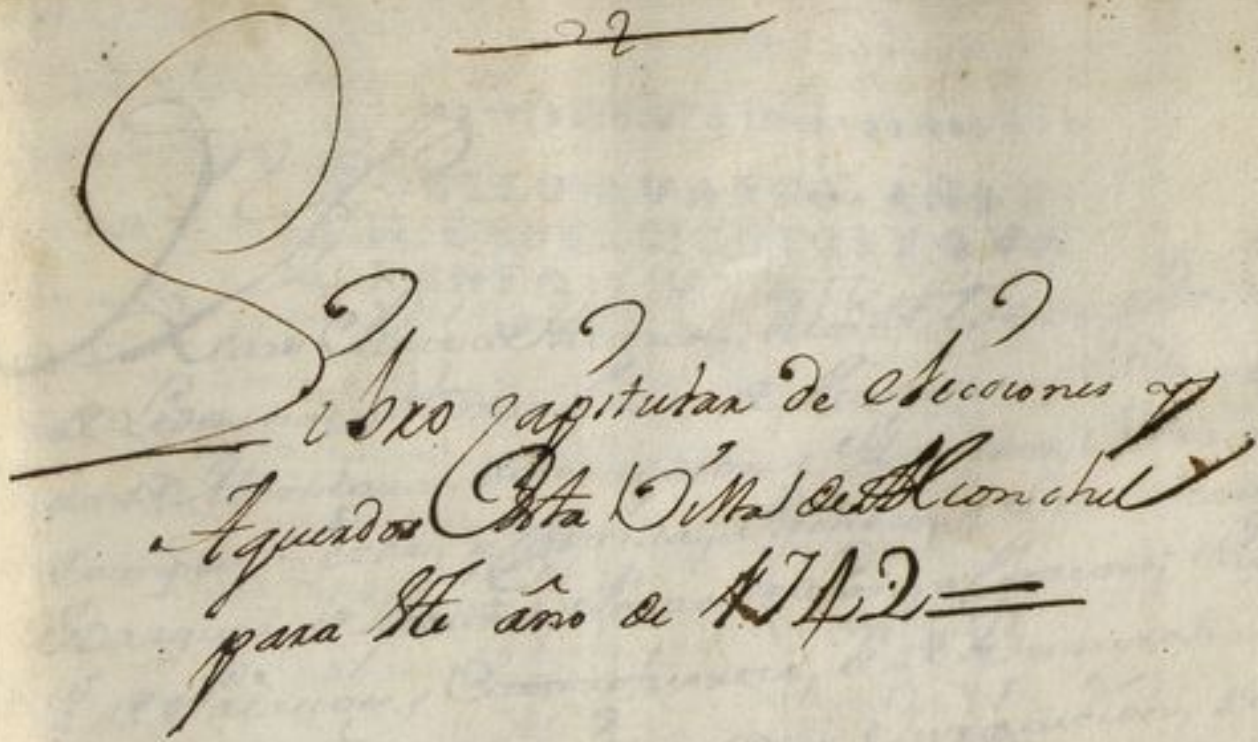 Libro Capitular de elecciones y
Aquerdos Desta Villa de Alconchel
para Este año de 1742=